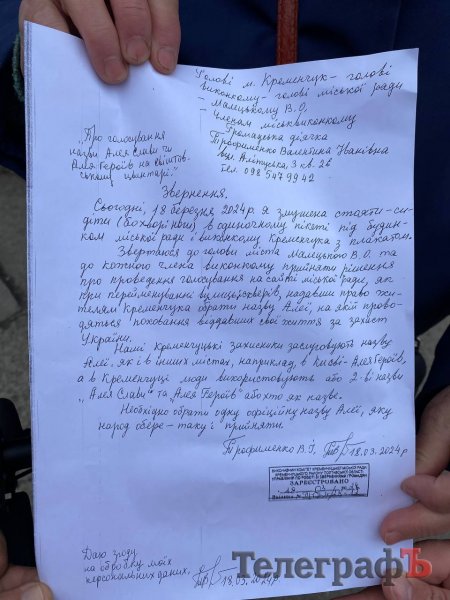 Голові м. Кременчук – голові
виконкому – голові міської ради
– Малецькому В.О.
– Членам міськвиконкому
Громадська діячка
Трофименко Валентина Іванівна
вул. кв. 26
тел. 098 547 99 42
"Про голосування
назви Алея Слави чи
Алея Героїв на Свіштов-
ському цвинтарі".
Звернення.
Сьогодні, 18 березня 2024р. я змушена стояти-си-
діти (бо хворі ноги) в одиночному пікеті під будин-
ком міської ради і виконкому Кременчука з плакатом.
Звертаюся до голови міста Малецького В.О. та
до кожного члена виконкому прийняти рішення
про проведення голосування на сайті міської ради, як
при перейменуванні вулиць, скверів, надавши право жи-
телям Кременчука обрати назву Алеї, на якій прово-
дяться поховання віддавших свої життя за захист
України.
Нашi кременчуцькі захисники заслуговують назву
Алеї, як і в інших містах, наприклад, в Києві – Алея Героїв,
а в Кременчуці люди використовують або 2-ві назви
"Алея Слави" та "Алея Героїв" або хто як назве.
Необхідно обрати одну офіційну назву Алеї, яку
народ обере – таку і прийняти.
Трофименко В.І. 18.03.2024р
ВИКОНАВЧИЙ КОМІТЕТ КРЕМЕНЧУЦЬКОЇ МІСЬКОЇ РАДИ
КРЕМЕНЧУЦЬКОГО РАЙОНУ ПОЛТАВСЬКОЇ ОБЛАСТІ
УПРАВЛІННЯ ПО РОБОТІ ЗІ ЗВЕРНЕННЯМИ ГРОМАДЯН
ЗАРЕЄСТРОВАНО
Даю згоду
на обробку моїх
персональних даних, 18.03.2024р.
ТелеграфЪ